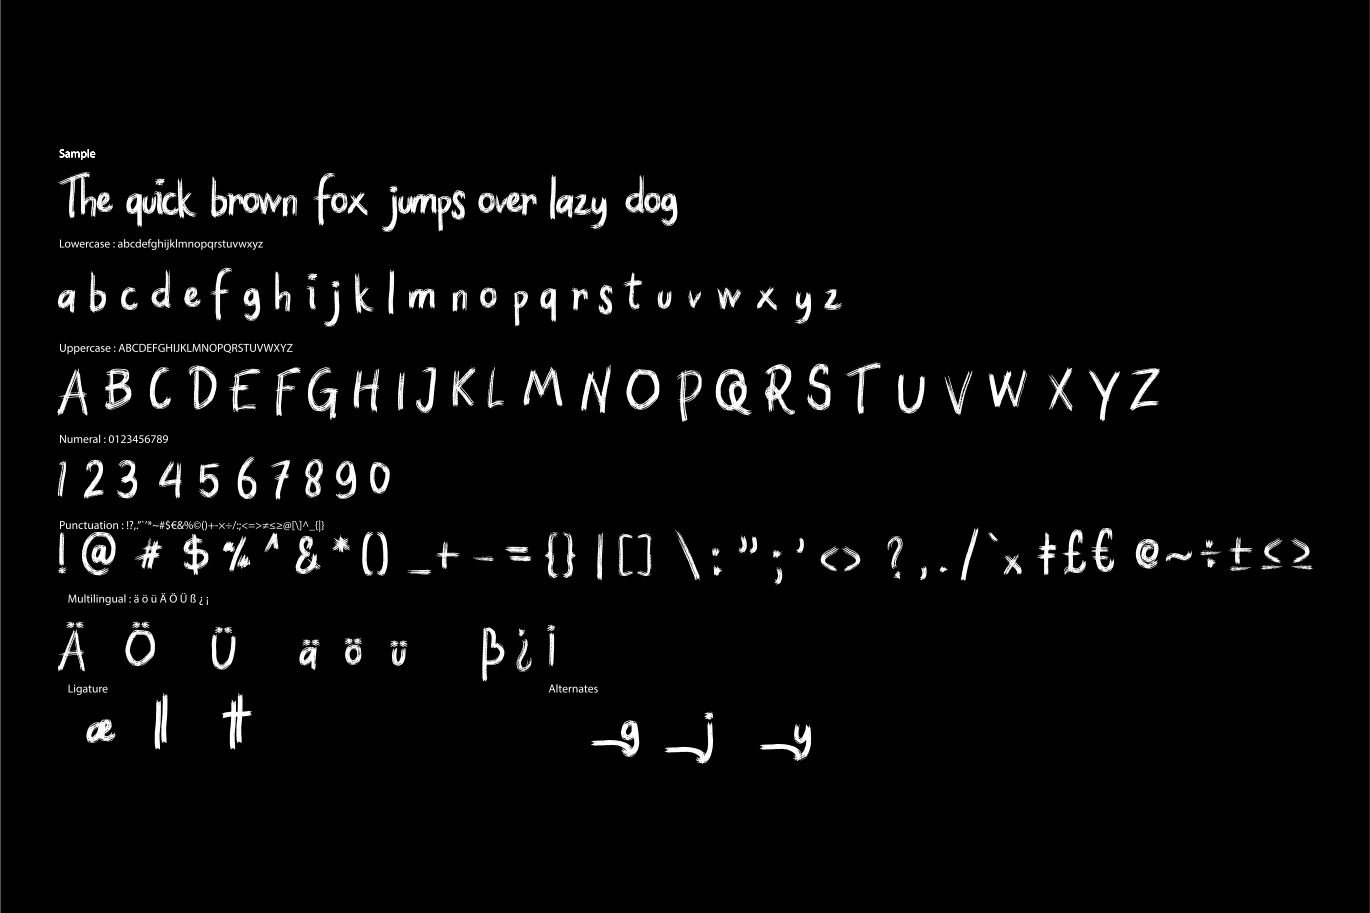 Sample
The quick brown fox jumps over lazy dog
Lowercase : abcdefghijklmnopqrstuvwxyz
a b c d e f g h i j k l m n o p q r s t u v w x y z
Uppercase : ABCDEFGHIJKLMNOPQRSTUVWXYZ
A B C D E F G H I J K L M N O P Q R S T U V W X Y Z
Numeral : 0123456789
1 2 3 4 5 6 7 8 9 0
Punctuation : !?,."`'*~#$€&%©()+-×÷/:;<=>≠≤≥@[\]^_{|}
! @ # $ % ^ & * ( ) _ + - = { } | [ ] \ : " ; ' < > ? , . / ` × ≠ £ € © ~ ÷ ± ≤ ≥
Multilingual : ä ö ü Ä Ö Ü ß ¿ ¡
Ä Ö Ü ä ö ü ß ¿ ¡
Ligature Alternates
æ ll tt _g _j _y